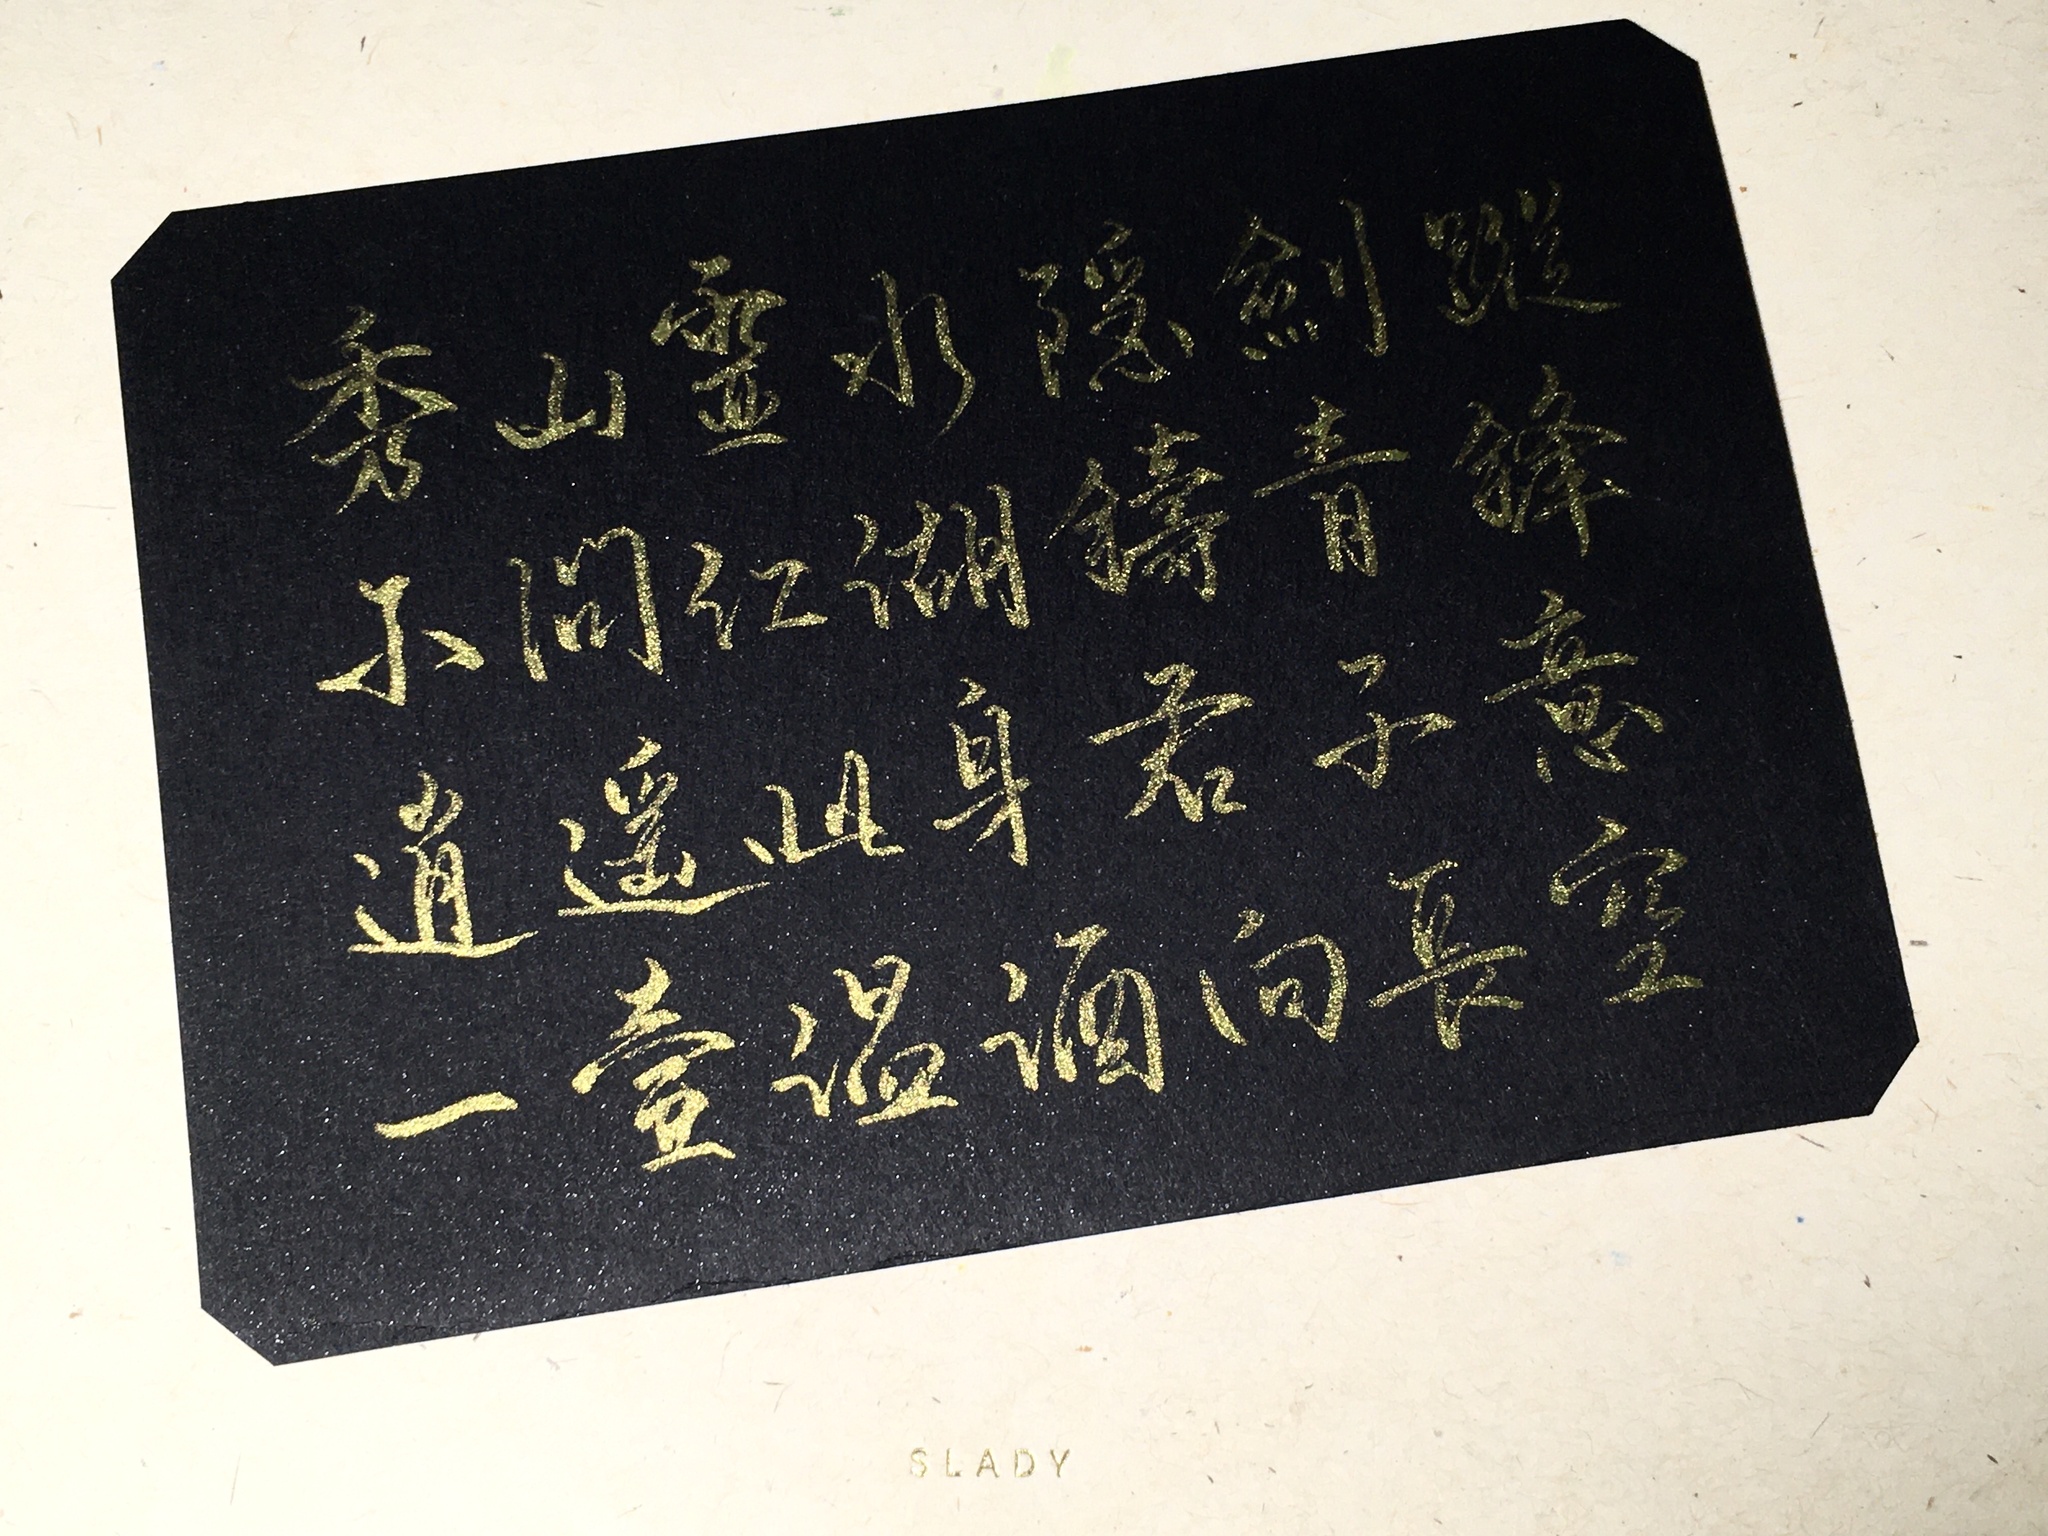 秀山靈水隱劍蹤
不問江湖鑄青鋒
逍遙此身君子意
一壺溫酒向長空
SLADY